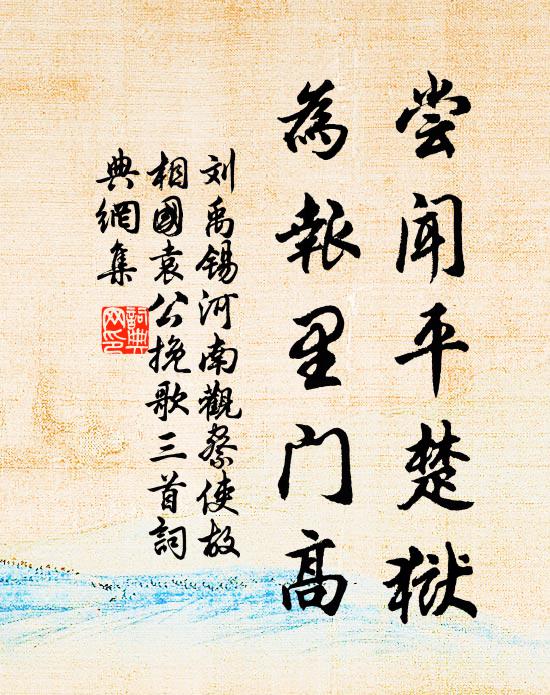 尝闻平楚狱
為報里门高
刘禹锡河南觀察使故
相國袁公挽歌三首詞
典網集
詞典
网印